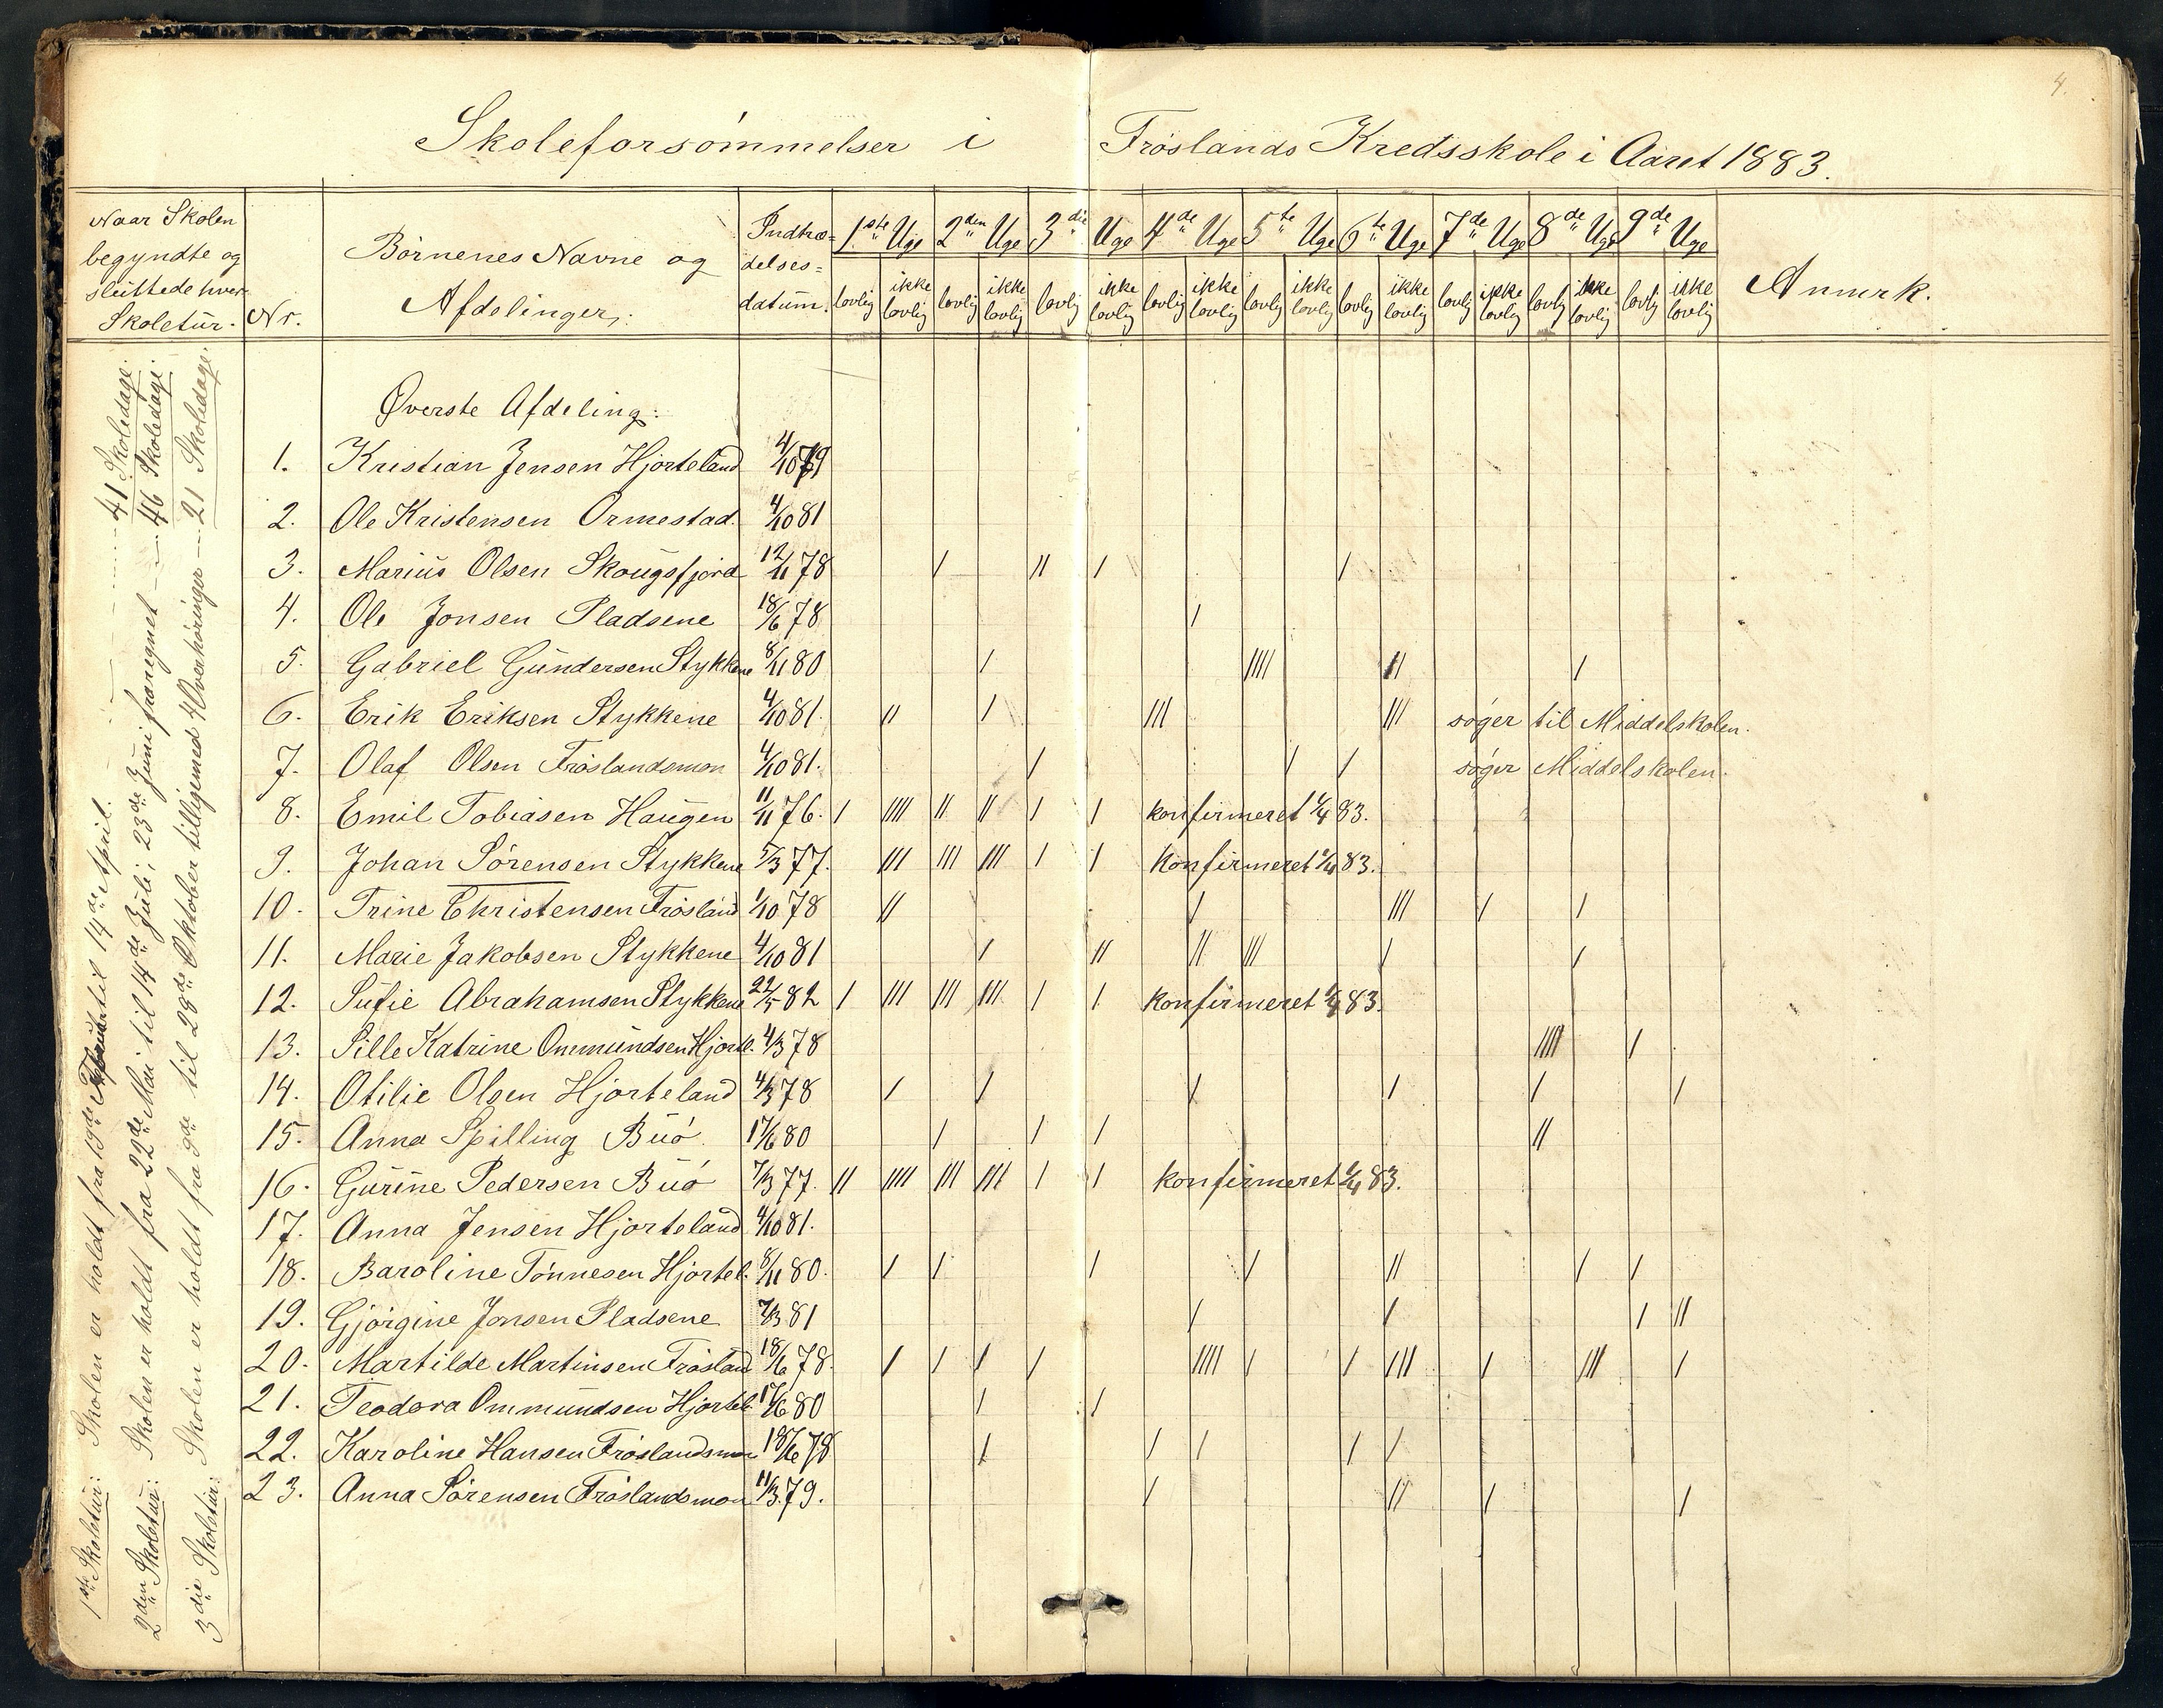 4.
Skoleforsømmelser i Frøslands Kredsskole i Aaret 1883.
Naar Skolen begyndte og sluttede hver Skoletur. Nr. Børnenes Navne og Afdelinger: Indtrædelsesdatum. 1ste Uge 2den Uge 3die Uge 4de Uge 5te Uge 6te Uge 7de Uge 8de Uge 9de Uge Anmerk.
lovlig ikke lovlig lovlig ikke lovlig lovlig ikke lovlig lovlig ikke lovlig lovlig ikke lovlig lovlig ikke lovlig lovlig ikke lovlig lovlig ikke lovlig lovlig ikke lovlig
1ste Skoletur: Skolen er holdt fra 19de til 14de April. 41 Skoledage
2den Skoletur: Skolen er holdt fra 22de Mai til 14de Juli; 23de Juni fraregnet — 46 Skoledage
3die Skoletur: Skolen er holdt fra 9de til 28de Oktober tilligemed 4 Overhøringer — 21 Skoledage.
Øverste Afdeling:
1. Kristian Jensen Hjorteland 4/10 79
2. Ole Kristensen Ormestad. 4/10 81
3. Marius Olsen Skougsfjord 12/11 78 / // / /
4. Ole Jonsen Pladsene 18/6 78 /
5. Gabriel Gundersen Stykkene 8/11 80 / //// // /
6. Erik Eriksen Stykkene 4/10 81. // / /// /// søger til Middelskolen.
7. Olaf Olsen Frøslandsmon 4/10 81. / / / søger Middelskolen.
8. Emil Tobiasen Haugen 11/11 76. / //// // // / / konfirmeret 1/4 83.
9. Johan Sørensen Stykkene 5/3 77. /// /// /// / / konfirmeret 1/4 83.
10. Trine Christensen Frøsland 1/10 78 // / /// / /
11. Marie Jakobsen Stykkene 4/10 81 / // // /// / /
12. Sufie Abrahamsen Stykkene 22/5 82 / /// /// /// / / konfirmeret 1/4 83.
13. Sille Katrine Ommundsen Hjortl. 4/3 78 //// /
14. Otilie Olsen Hjorteland 4/3 78 / / / / / /
15. Anna Spilling Buø 17/6 80 / / / //
16. Gurine Pedersen Buø 7/3 77. // //// /// /// / / konfirmeret 1/4 83.
17. Anna Jensen Hjorteland 4/10 81.
18. Baroline Tønnesen Hjortel. 8/11 80. / / / / // / /
19. Gjørgine Jonsen Pladsene 7/3 81 / / / //
20. Martilde Martinsen Frøsland 18/6 78. / / / / //// / / /// / /// /
21. Teodora Ommundsen Hjortel. 17/6 80 / /
22. Karoline Hansen Frøslandsmon 18/6 78 / / / / /
23. Anna Sørensen Frøslandsmon 11/3 79. / // / /